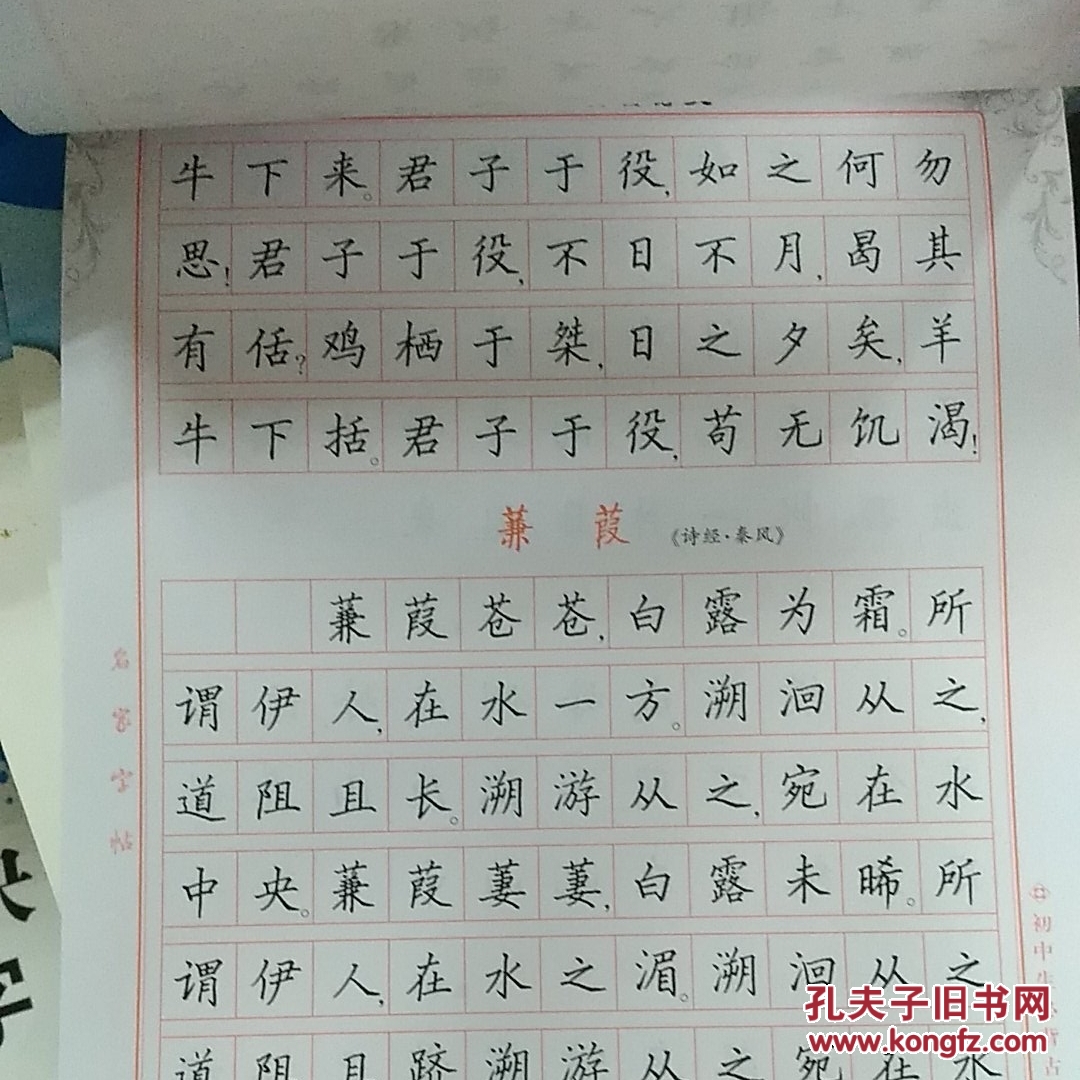 牛下来。君子于役，如之何勿
思！君子于役，不日不月，曷其
有佸？鸡栖于桀，日之夕矣，羊
牛下括。君子于役，苟无饥渴！
蒹葭 《诗经·秦风》
蒹葭苍苍，白露为霜。所
谓伊人，在水一方。溯洄从之，
道阻且长。溯游从之，宛在水
中央。蒹葭萋萋，白露未晞。所
谓伊人，在水之湄。溯洄从之
道阻且跻溯游从之宛在水
名家字帖
初中生
孔夫子旧书网
www.kongfz.com